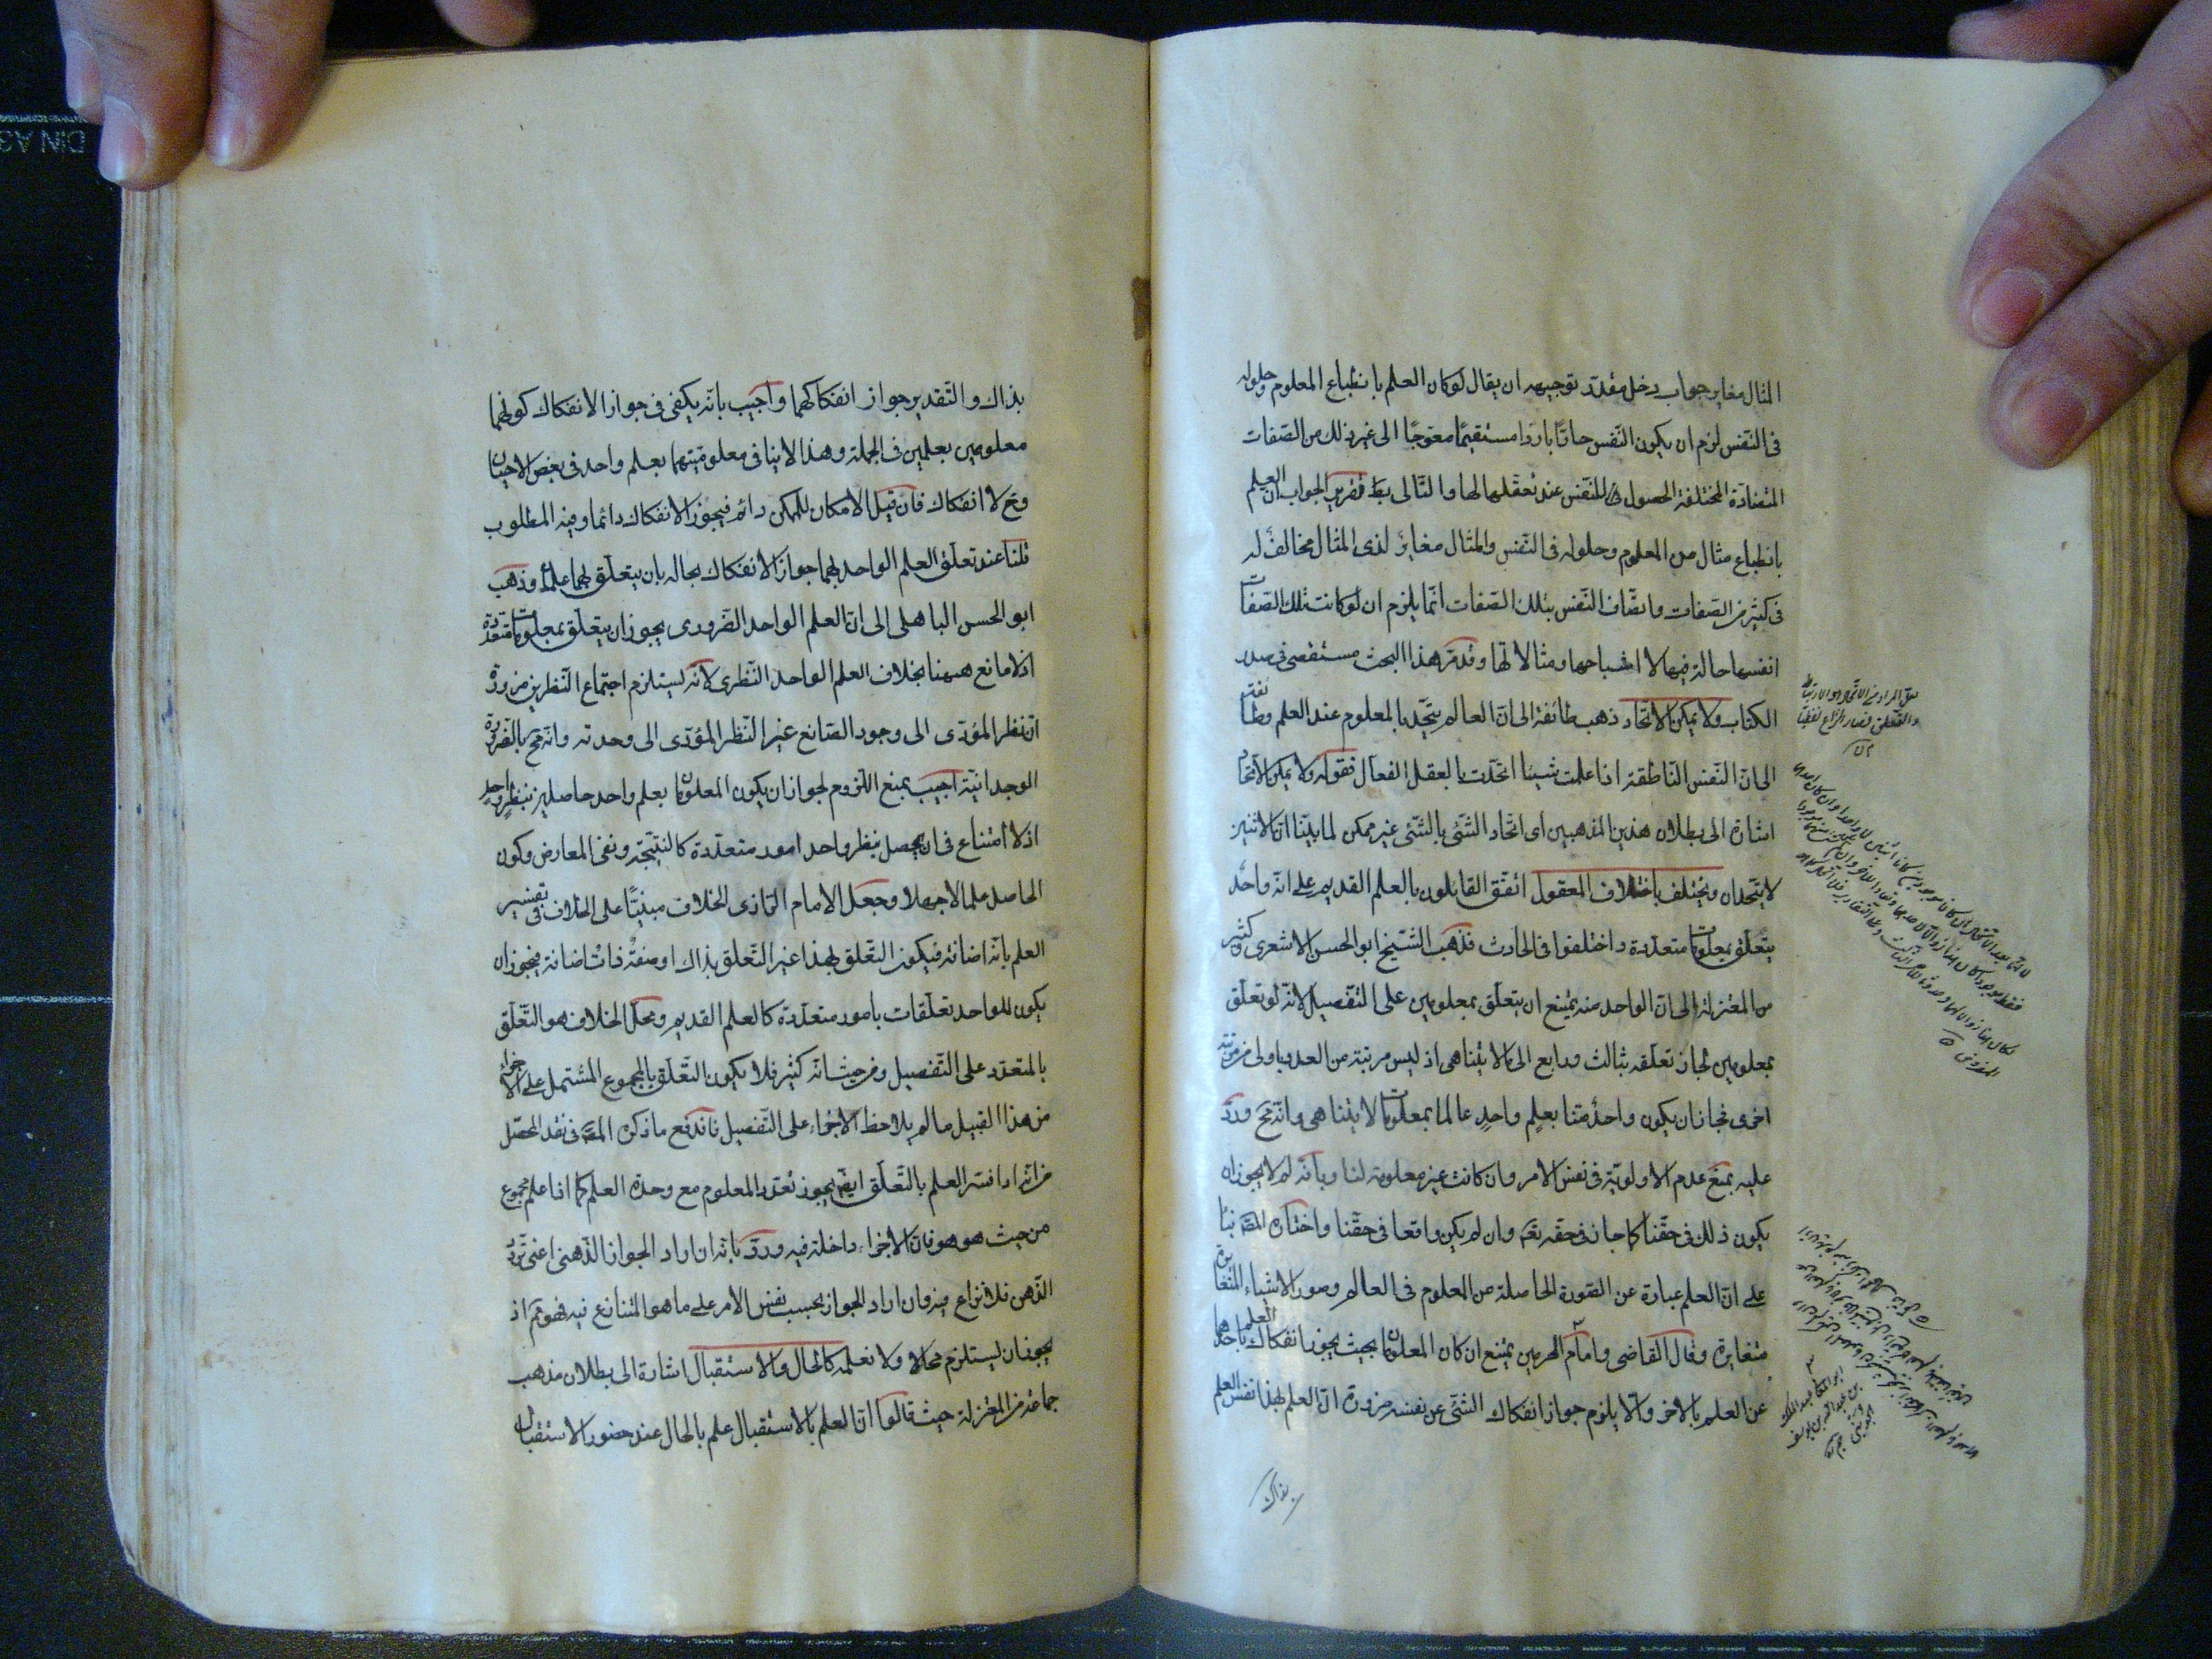 المثال مغاير جواب دخل مقدّر توجيهه ان يقال لو كان العلم بانطباع المعلوم وحلوله
فى النّفس لزم ان يكون النّفس حارّا باردا مستقيمًا معوّجًا الى غير ذلك من الصّفات
المتضادّة المختلفة الحصول للنّفس عند تعقّلها لها والتّالى بط تقرير الجواب ان العلم
بانطباع مثال من المعلوم وحلوله فى النّفس والمثال مغاير لذى المثال مخالف له
فى كثير من الصّفات واتصّاف النّفس بتلك الصّفات انّما يلزم ان لو كانت تلك الصّفات
انفسها حالة فيها لا اشباحها ومثالاتها وقد مرّ هذا البحث مستقصى فى صدر
الكتاب ولا يمكن الاتّحاد ذهب طائفة الى انّ العالم يتّحد بالمعلوم عند العلم وطائفة
الى انّ النّفس النّاطقة اذا علمت شيئا اتّحدت بالعقل الفعال فقوله ولا يمكن الاتّحاد
اشارة الى بطلان هذين المذهبين اى اتّحاد الشّئ بالشّئ غير ممكن لما بيّنّا انّ الاثنين
لا يتّحدان ويختلف باختلاف المعقول اتّفق القايلون بالعلم القديم على انّه واحد
يتعلّق بمعلومات متعدّدة واختلفوا فى الحادث فذهب الشّيخ ابو الحسن الاشعرى وكثير
من المعتزلة الى انّ الواحد منه يمتنع ان يتعلّق بمعلومين على التّفصيل لانّه لو تعلّق
بمعلومين لجاز تعلّقه بثالث ورابع الى ما لا يتناهى اذ ليس مرتبة من العدد باولى من مرتبة
اخرى فجاز ان يكون واحد منّا بعلم واحد عالما بمعلومات لا يتناهى وانّه مح وردّ
عليه بمنع عدم الاولويّة فى نفس الامر وان كانت غير معلومة لنا وبانّه لم لا يجوز ان
يكون ذلك فى حقّنا كما جاز فى حقّه تعه وان لم يكن واقعا فى حقّنا واختاره المصّ بنائا
على انّ العلم عبارة عن الصّورة الحاصلة من المعلوم فى العالم وصور الاشياء المتغايرة
متغايرة وقال القاضى وامام الحرمين يمتنع ان كان المعلومان بحيث يجوز انفكاك العلم باحدهما
عن العلم بالاخر والّا يلزم جواز انفكاك الشّئ عن نفسه ضرورة انّ العلم بهذا نفس العلم
بذاك
بذاك والتّقدير جواز انفكاكهما واجيب بانّه يكفى فى جواز الانفكاك كونهما
معلومين بعلمين فى الجملة وهذا لا ينافى معلوميّتهما بعلم واحد فى بعض الاحيان
وح لا انفكاك فان قيل الامكان للممكن دائم فيجوز الانفكاك دائما وفيه المطلوب
قلنا عند تعلّق العلم الواحد بهما جواز الانفكاك بحاله بان يتعلّق بهما علمان وذهب
ابو الحسن الباهلى الى انّ العلم الواحد الضّرورى يجوز ان يتعلّق بمعلومات متعدّدة
اذ لا مانع ههنا بخلاف العلم الواحد النّظرى لانّه يستلزم اجتماع النّظرين ضرورة
انّ النظر المؤدّى الى وجود الصّانع غير النّظر المؤدّى الى وحدته وانّه مح بالضّرورة
الوجدانيّة اجيب بمنع اللّزوم لجواز ان يكون المعلومان بعلم واحد حاصلين بنظر واحد
اذ لا امتناع فى ان يحصل بنظر واحد امور متعدّدة كالنتيجة ونفى المعارض وكون
الحاصل علما لا جهلا وجعل الامام الرّازى الخلاف مبنيّا على الخلاف فى تفسير
العلم بانّه اضافة فيكون التّعلّق بهذا غير التّعلّق بذاك او صفة ذات اضافة فيجوز ان
يكون للواحد تعلّقات بامور متعدّدة كالعلم القديم ومحلّ الخلاف هو التّعلّق
بالمتعدّد على التّفصيل ومن حيث انّه كثير فلا يكون التّعلّق بالمجموع المشتمل على الاجزاء
من هذا القبيل ما لم يلاحظ الاجزاء على التّفصيل فاندفع ما ذكره المصّ فى نقد المحصّل
من انّه اذا فسّر العلم بالتّعلّق ايضا يجوز تعدّد المعلوم مع وحدة العلم كما اذا علم مجموع
من حيث هو هو فانّ الاجزاء داخلة فيه وردّ بانّه ان اراد الجواز الذّهنى اعنى تردّد
الذّهن فلا نزاع فيه وان اراد الجواز بحسب نفس الامر على ما هو المتنازع فيه فهو مم اذ
يجوز ان يستلزم محالا ولا نعلمه كالحال والاستقبال اشارة الى بطلان مذهب
جماعة من المعتزلة حيث قالوا انّ العلم بالاستقبال علم بالحال عند حضور الاستقبال